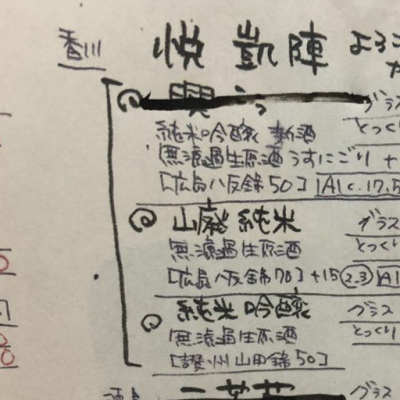 香川
悦 凱陣 よろこ
グラス
純米吟醸 新酒 とっくり
無濾過生原酒 うすにごり +
[広島八反錦50] Alc.17.5
山廃 純米 グラス
無濾過生原酒 とっくり
[広島八反錦70] +15 2.3 Al
純米吟醸 グラス
無濾過生原酒 とっくり
[讃州山田錦50]
グラス